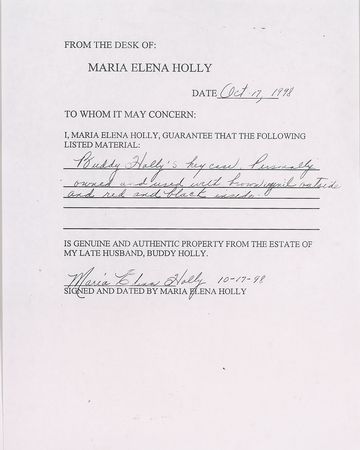 FROM THE DESK OF:
MARIA ELENA HOLLY
DATE Oct. 17, 1998
TO WHOM IT MAY CONCERN:
I, MARIA ELENA HOLLY, GUARANTEE THAT THE FOLLOWING
LISTED MATERIAL:
Buddy Holly's key case. Personally
owned and used with brown vynil outside
and red and black inside.
IS GENUINE AND AUTHENTIC PROPERTY FROM THE ESTATE OF
MY LATE HUSBAND, BUDDY HOLLY.
Maria Elena Holly 10-17-98
SIGNED AND DATED BY MARIA ELENA HOLLY